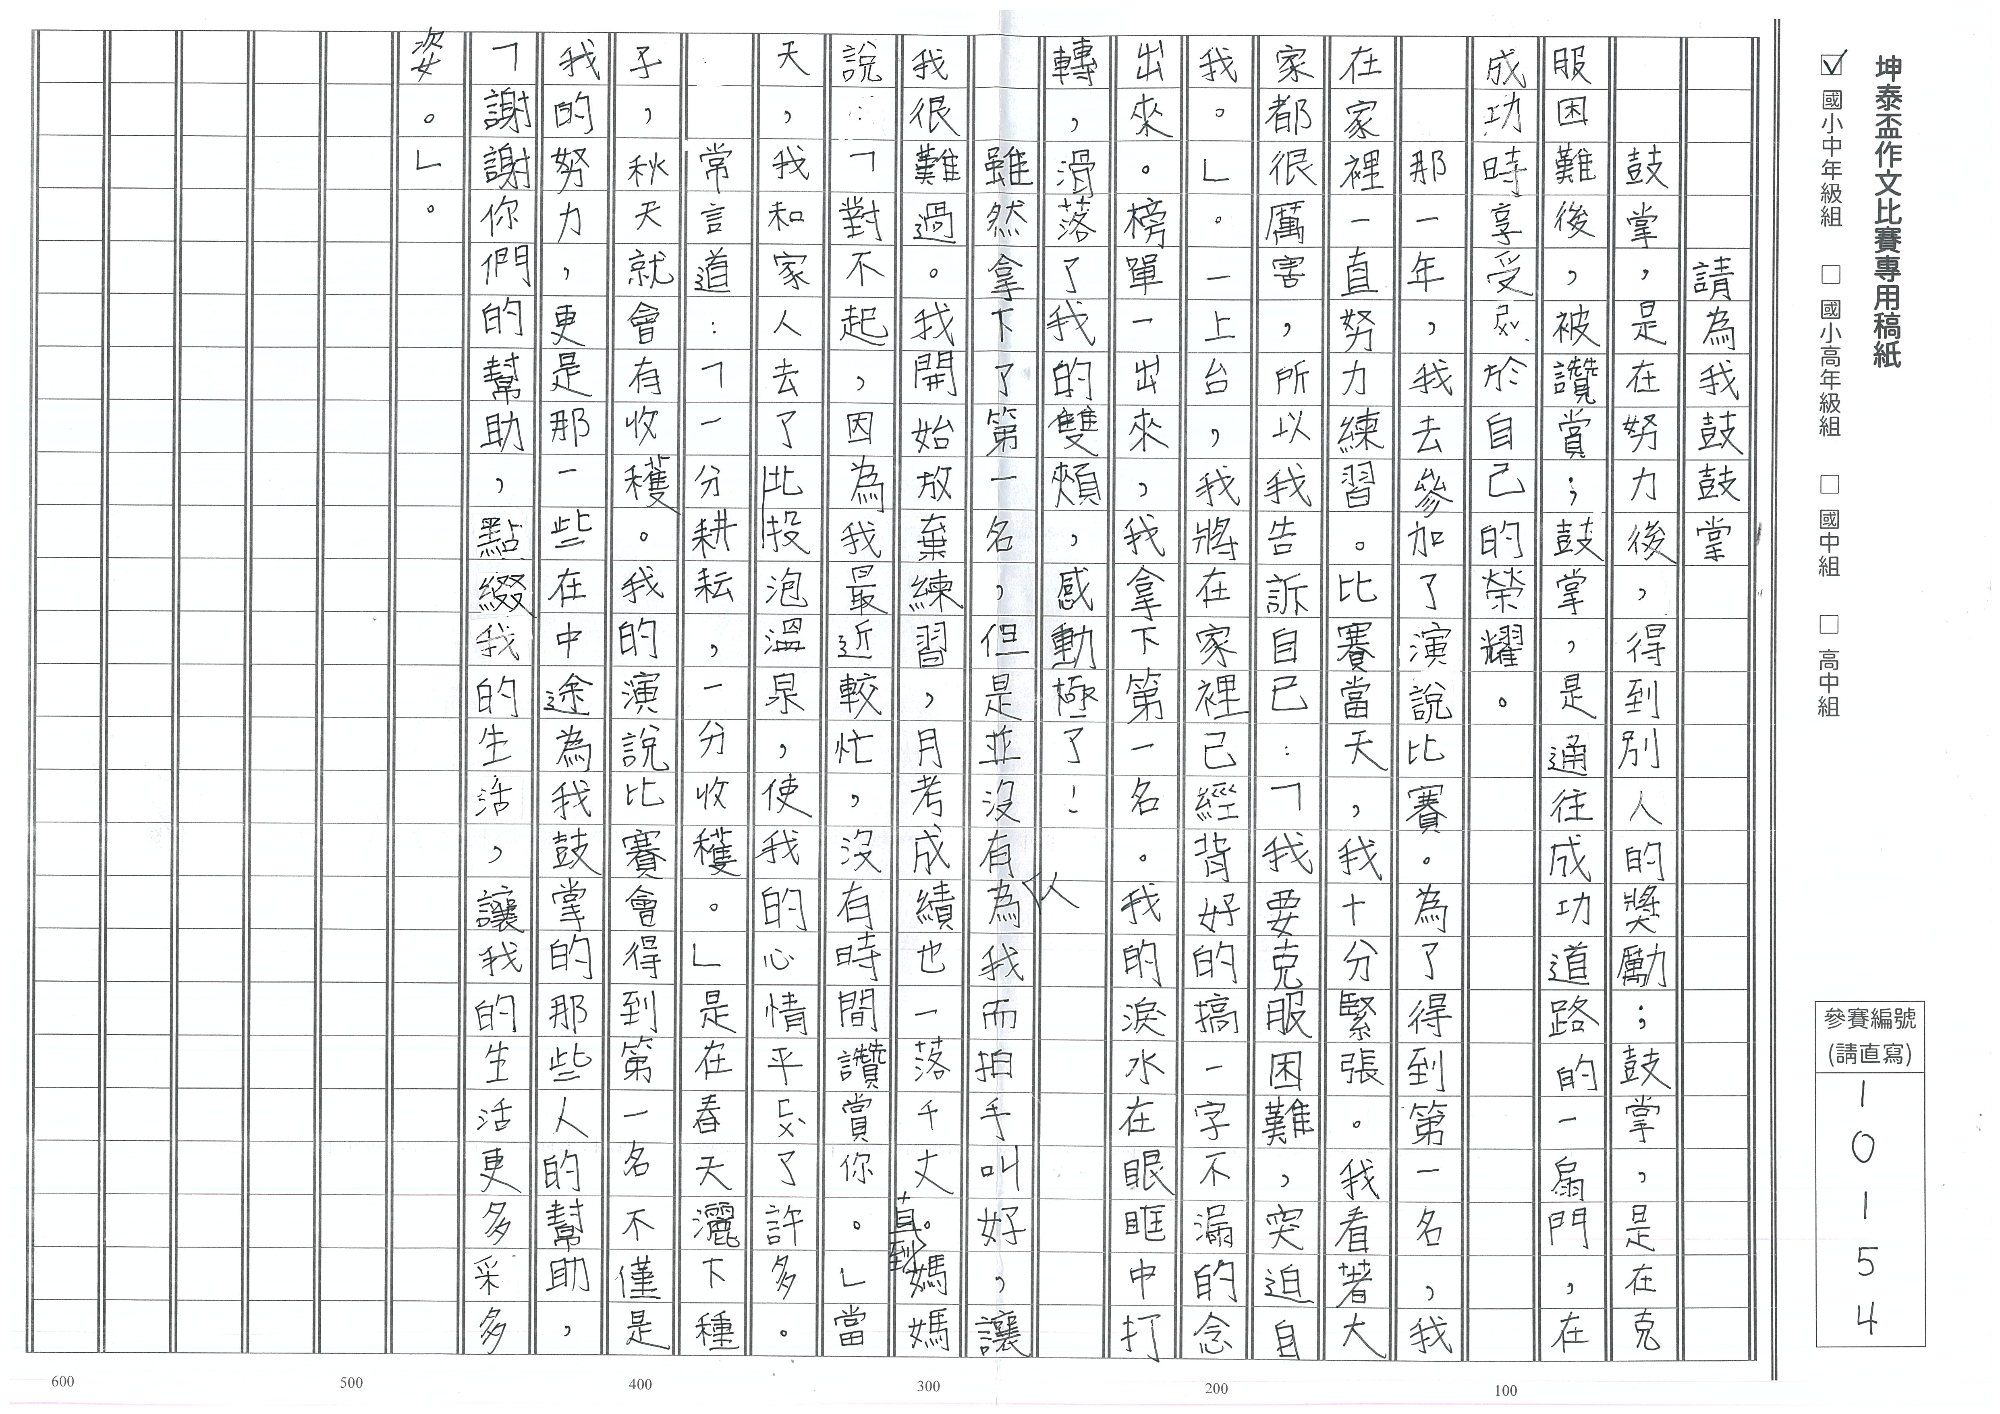 坤泰盃作文比賽專用稿紙
☑國小中年級組 □國小高年級組 □國中組 □高中組
參賽編號
(請直寫)
10154
請為我鼓鼓掌
鼓掌,是在努力後,得到別人的獎勵;鼓掌,是在克
服困難後,被讚賞;鼓掌,是通往成功道路的一扇門,在
成功時享受屬於自己的榮耀。
那一年,我去參加了演說比賽。為了得到第一名,我
在家裡一直努力練習。比賽當天,我十分緊張。我看著大
家都很厲害,所以我告訴自己:「我要克服困難,突迫自
我。」。一上台,我將在家裡已經背好的搞一字不漏的念
出來。榜單一出來,我拿下第一名。我的淚水在眼眶中打
轉,滑落了我的雙頰,感動極了!
雖然拿下了第一名,但是並沒有人為我而拍手叫好,讓
我很難過。我開始放棄練習,月考成績也一落千丈。直到媽媽
說:「對不起,因為我最近較忙,沒有時間讚賞你。」當
天,我和家人去了北投泡溫泉,使我的心情平ㄈㄨˋ了許多。
常言道:「一分耕耘,一分收穫。」是在春天灑下種
子,秋天就會有收穫。我的演說比賽會得到第一名不僅是
我的努力,更是那一些在中途為我鼓掌的那些人的幫助,
「謝謝你們的幫助,點綴我的生活,讓我的生活更多采多
姿。」。
100
200
300
400
500
600